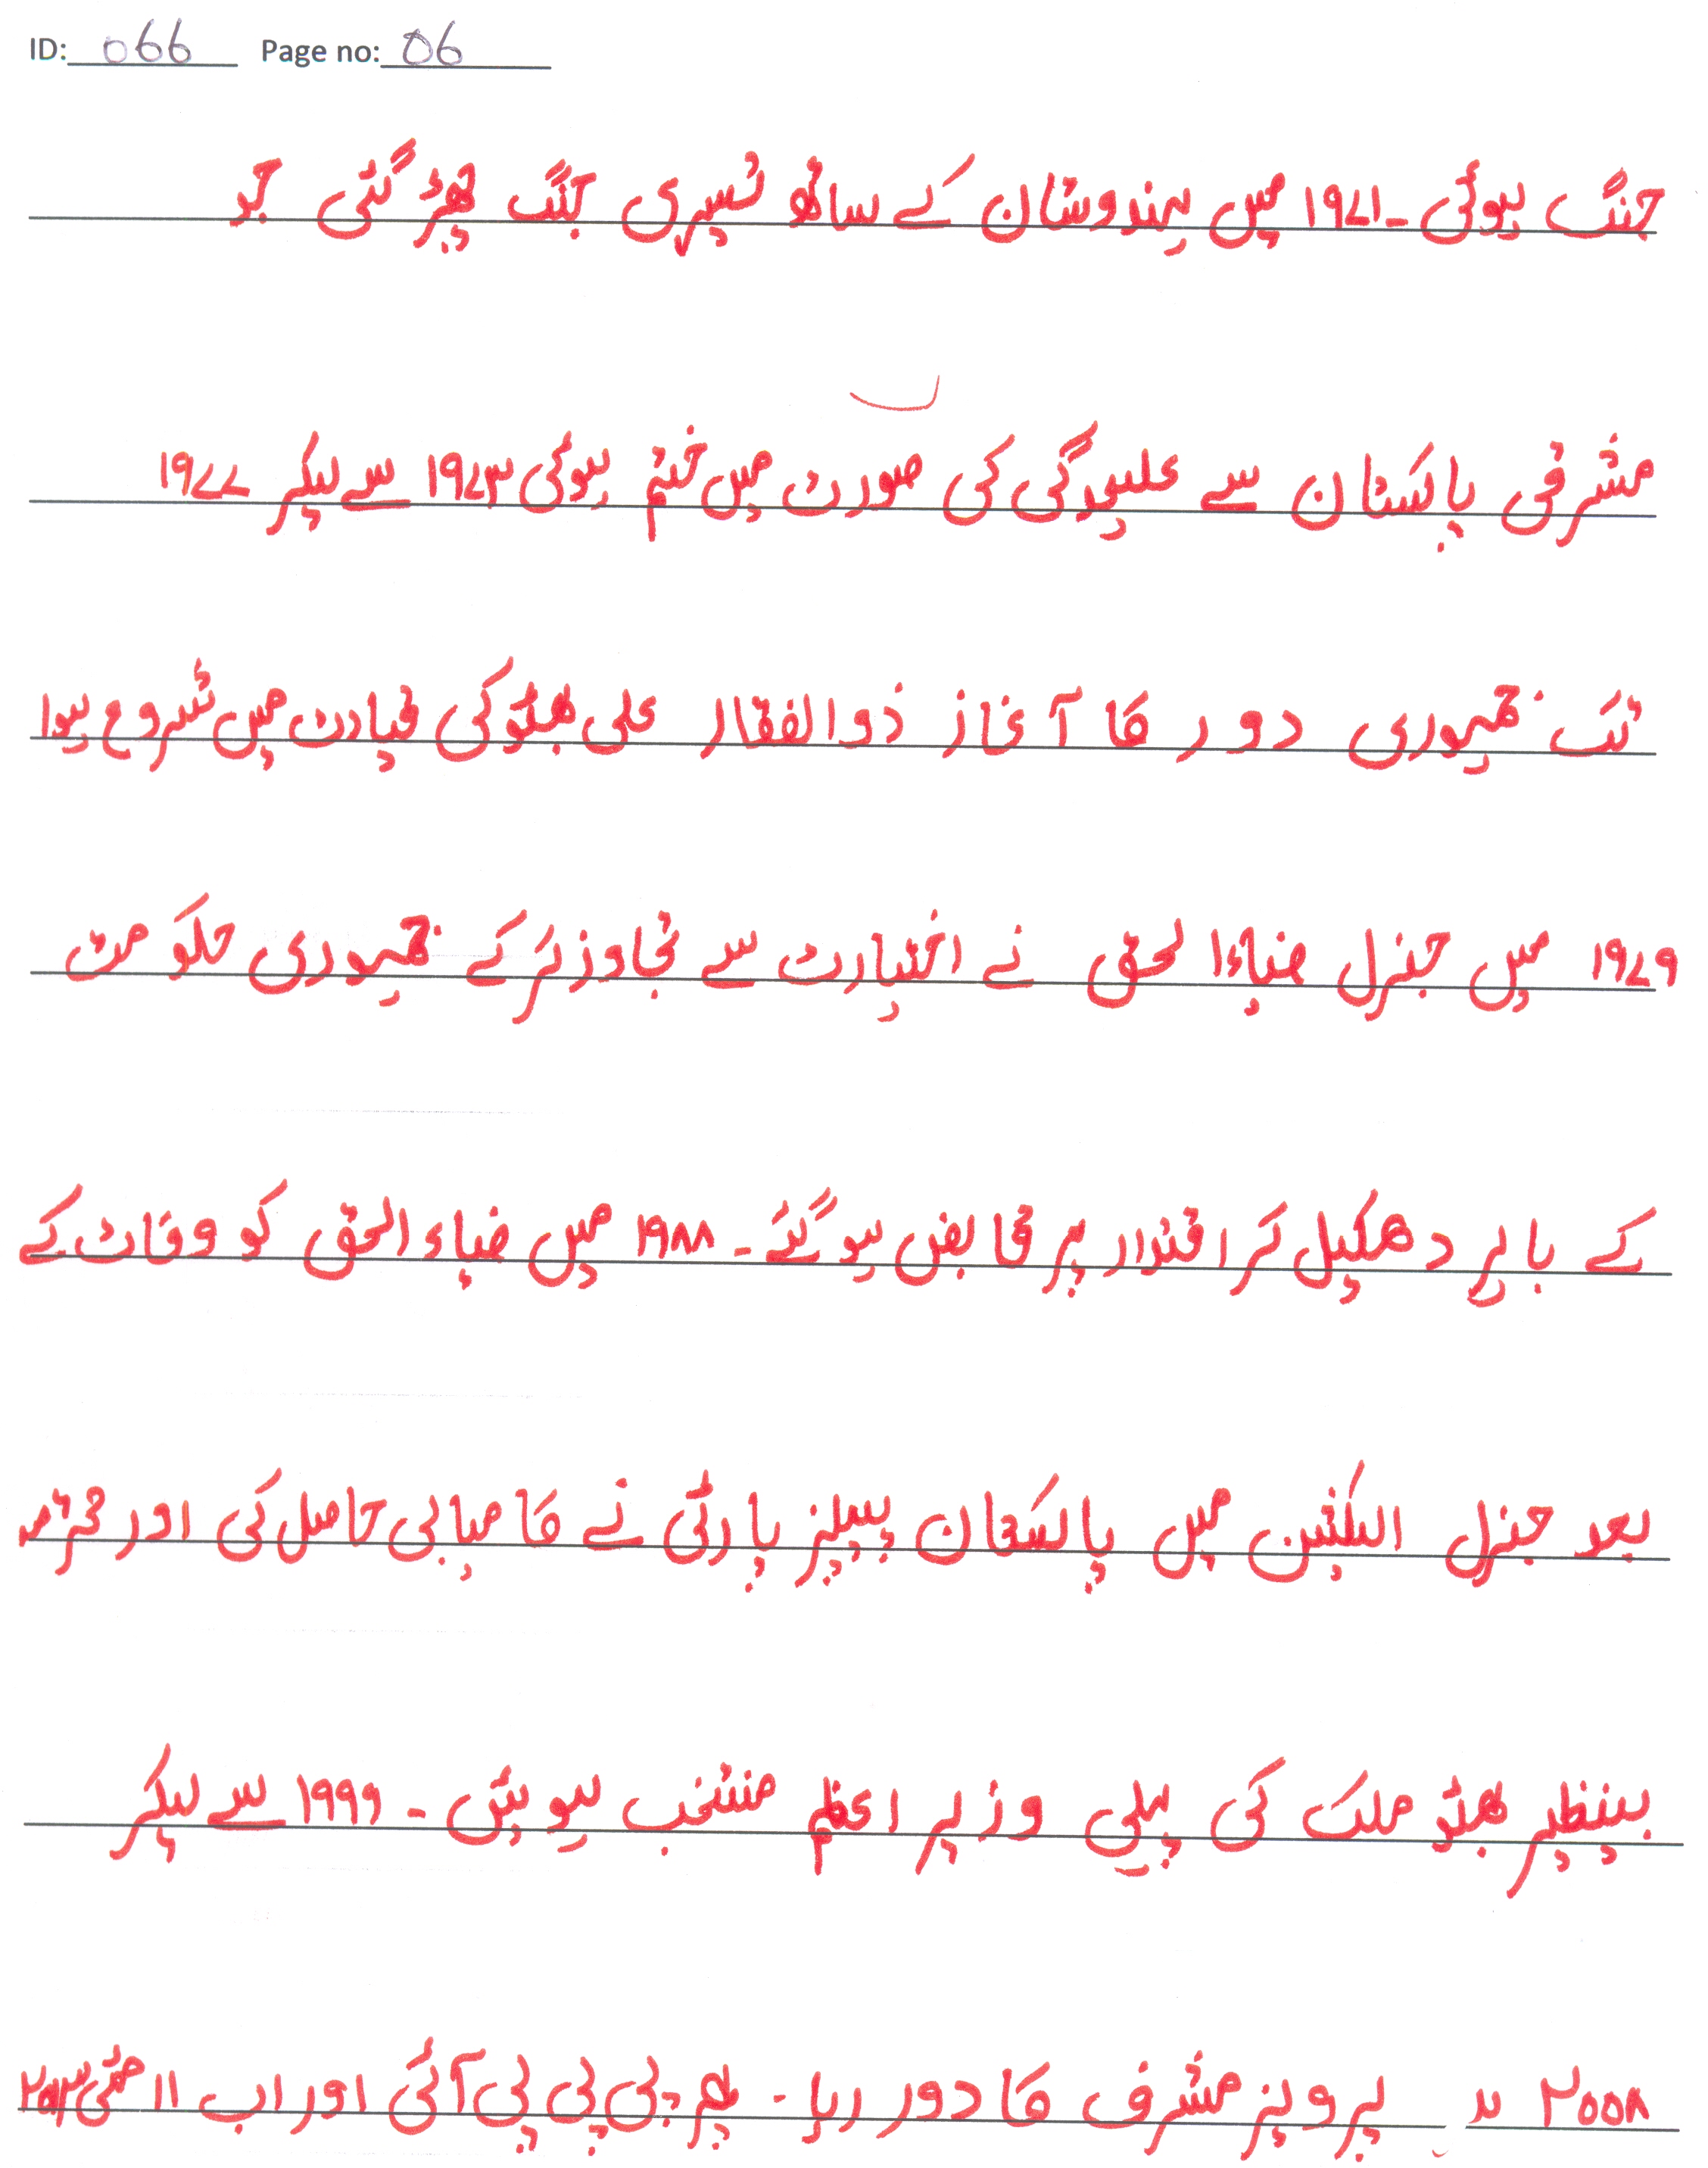 ID: 066 Page no: 06
جنگ ہوئی ۔ ۱۹۷۱ میں ہندوستان کے ساتھ تیسری جنگ چھڑ گئی جو
مشرقی پاکستان سے علیحدگی کی صورت میں ختم ہوئی ۱۹۷۳ سے لیکر ۱۹۷۷
تک جمہوری دور کا آغاز ذوالفقار علی بھٹو کی قیادت میں شروع ہوا
۱۹۷۹ میں جنرل ضیاءالحق نے اختیارت سے تجاوز کر کے جمہوری حکومت
کے باہر دھکیل کر اقتدار پر قابض ہو گئے ۔ ۱۹۸۸ میں ضیاء الحق کو وفات کے
بعد جنرل الیکشن میں پاکستان پیپلز پارٹی نے کامیابی حاصل کی اور محترمہ
بینظیر بھٹو ملک کی پہلی وزیر اعظم منتخب ہوئیں ۔ ۱۹۹۹ سے لیکر
۲۰۰۸ پرویز مشرف کا دور رہا ۔ پھر پی پی پی آئی اور اب ۱۱ مئی ۲۰۱۳